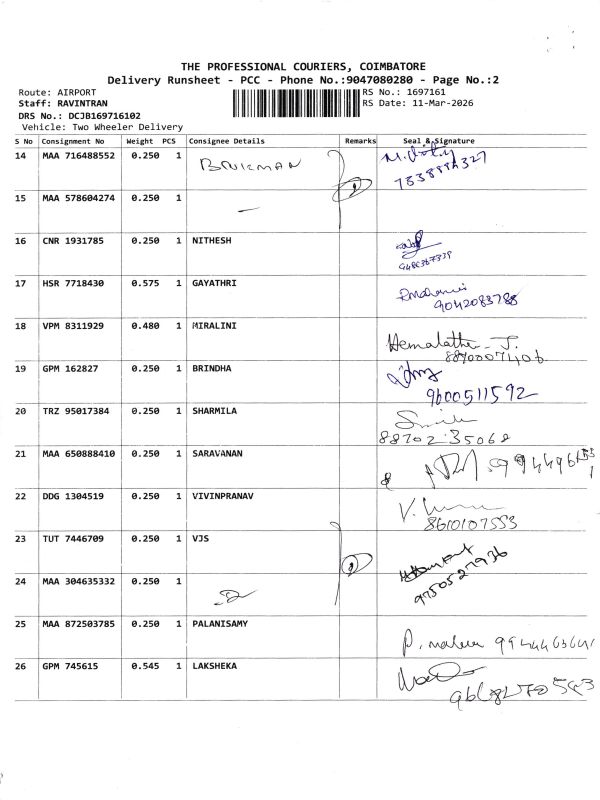 THE PROFESSIONAL COURIERS, COIMBATORE
Delivery Runsheet - PCC - Phone No.:9047080280 - Page No.:2
Route: AIRPORT
RS No.: 1697161
Staff: RAVINTRAN
RS Date: 11-Mar-2026
DRS No.: DCJB169716102
Vehicle: Two Wheeler Delivery
S No Consignment No Weight PCS Consignee Details Remarks Seal & Signature
14 MAA 716488552 0.250 1
15 MAA 578604274 0.250 1
16 CNR 1931785 0.250 1 NITHESH
17 HSR 7718430 0.575 1 GAYATHRI
9042083788
18 VPM 8311929 0.480 1 MIRALINI
Hemalatha. J.
8890007406
19 GPM 162827 0.250 1 BRINDHA
9600511592
20 TRZ 95017384 0.250 1 SHARMILA
88702 35068
21 MAA 650888410 0.250 1 SARAVANAN
22 DDG 1304519 0.250 1 VIVINPRANAV
8610107553
23 TUT 7446709 0.250 1 VJS
9750527936
24 MAA 304635332 0.250 1
25 MAA 872503785 0.250 1 PALANISAMY
26 GPM 745615 0.545 1 LAKSHEKA